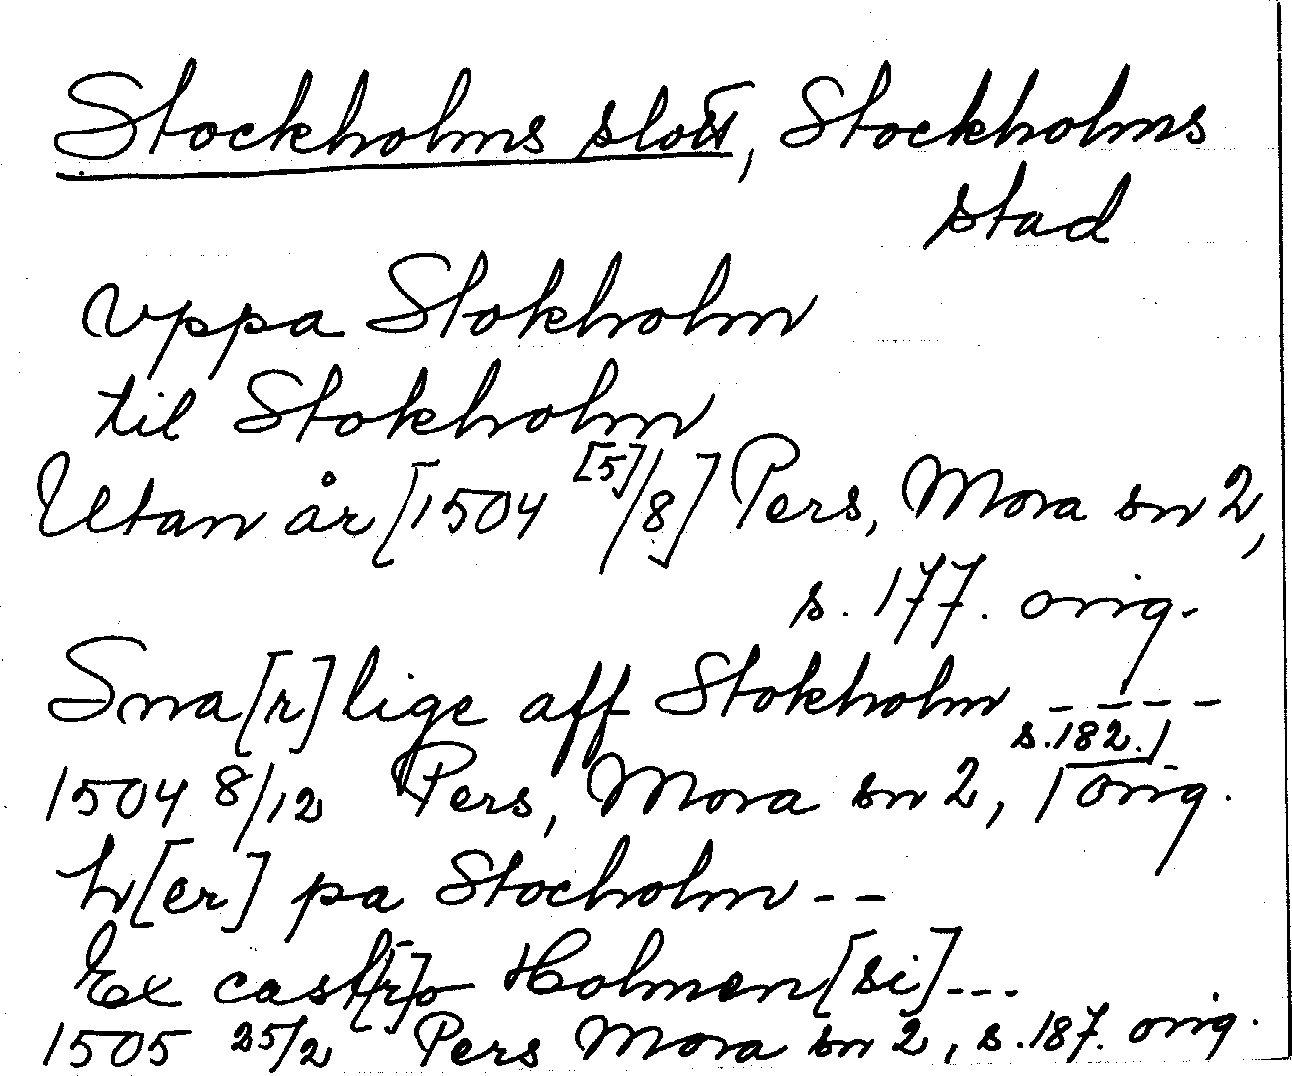 Stockholms slott, Stockholms
stad
vppa Stokholm
til Stokholm
Utan år [1504 [5]/8] Pers, Mora sn 2,
s. 177. orig.
Sna[r]lige aff Stokholm ----
s.182.
1504 8/12 Pers, Mora sn 2, orig.
h[er] pa Stocholm --
Ex cast[r]o Holmen[si]---
1505 25/2 Pers Mora sn 2, s.187. orig.